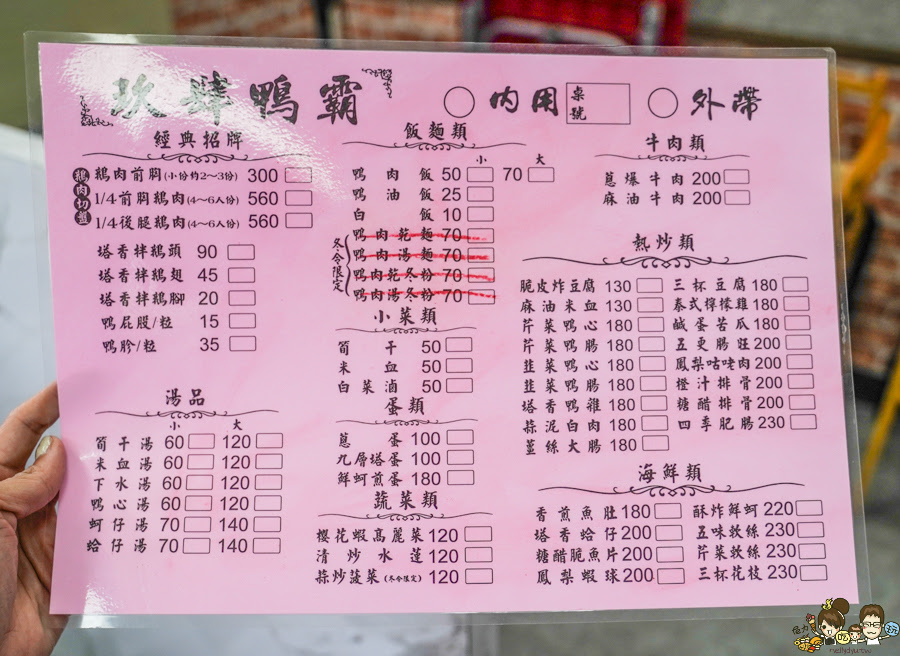 玖肆鴨霸
內用 桌號 外帶
經典招牌
鵝肉切盤
鵝肉前胸(小份約2~3份) 300
1/4前胸鵝肉(4~6人份) 560
1/4後腿鵝肉(4~6人份) 560
塔香拌鵝頭 90
塔香拌鵝翅 45
塔香拌鵝腳 20
鴨屁股/粒 15
鴨肫/粒 35
湯品
小 大
筍干湯 60 120
米血湯 60 120
下水湯 60 120
鴨心湯 60 120
蚵仔湯 70 140
蛤仔湯 70 140
飯麵類
小 大
鴨肉飯 50 70
鴨油飯 25
白飯 10
冬令限定
鴨肉乾麵 70
鴨肉湯麵 70
鴨肉乾冬粉 70
鴨肉湯冬粉 70
小菜類
筍干 50
米血 50
白菜滷 50
蛋類
蔥蛋 100
九層塔蛋 100
鮮蚵煎蛋 180
蔬菜類
櫻花蝦高麗菜 120
清炒水蓮 120
蒜炒菠菜(冬令限定) 120
牛肉類
蔥爆牛肉 200
麻油牛肉 200
熱炒類
脆皮炸豆腐 130
麻油米血 130
芹菜鴨心 180
芹菜鴨腸 180
韭菜鴨心 180
韭菜鴨腸 180
塔香鴨雜 180
蒜泥白肉 180
薑絲大腸 180
三杯豆腐 180
泰式檸檬雞 180
鹹蛋苦瓜 180
五更腸旺 200
鳳梨咕咾肉 200
橙汁排骨 200
糖醋排骨 200
四季肥腸 230
海鮮類
香煎魚肚 180
塔香蛤仔 200
糖醋脆魚片 200
鳳梨蝦球 200
酥炸鮮蚵 220
五味軟絲 230
芹菜軟絲 230
三杯花枝 230